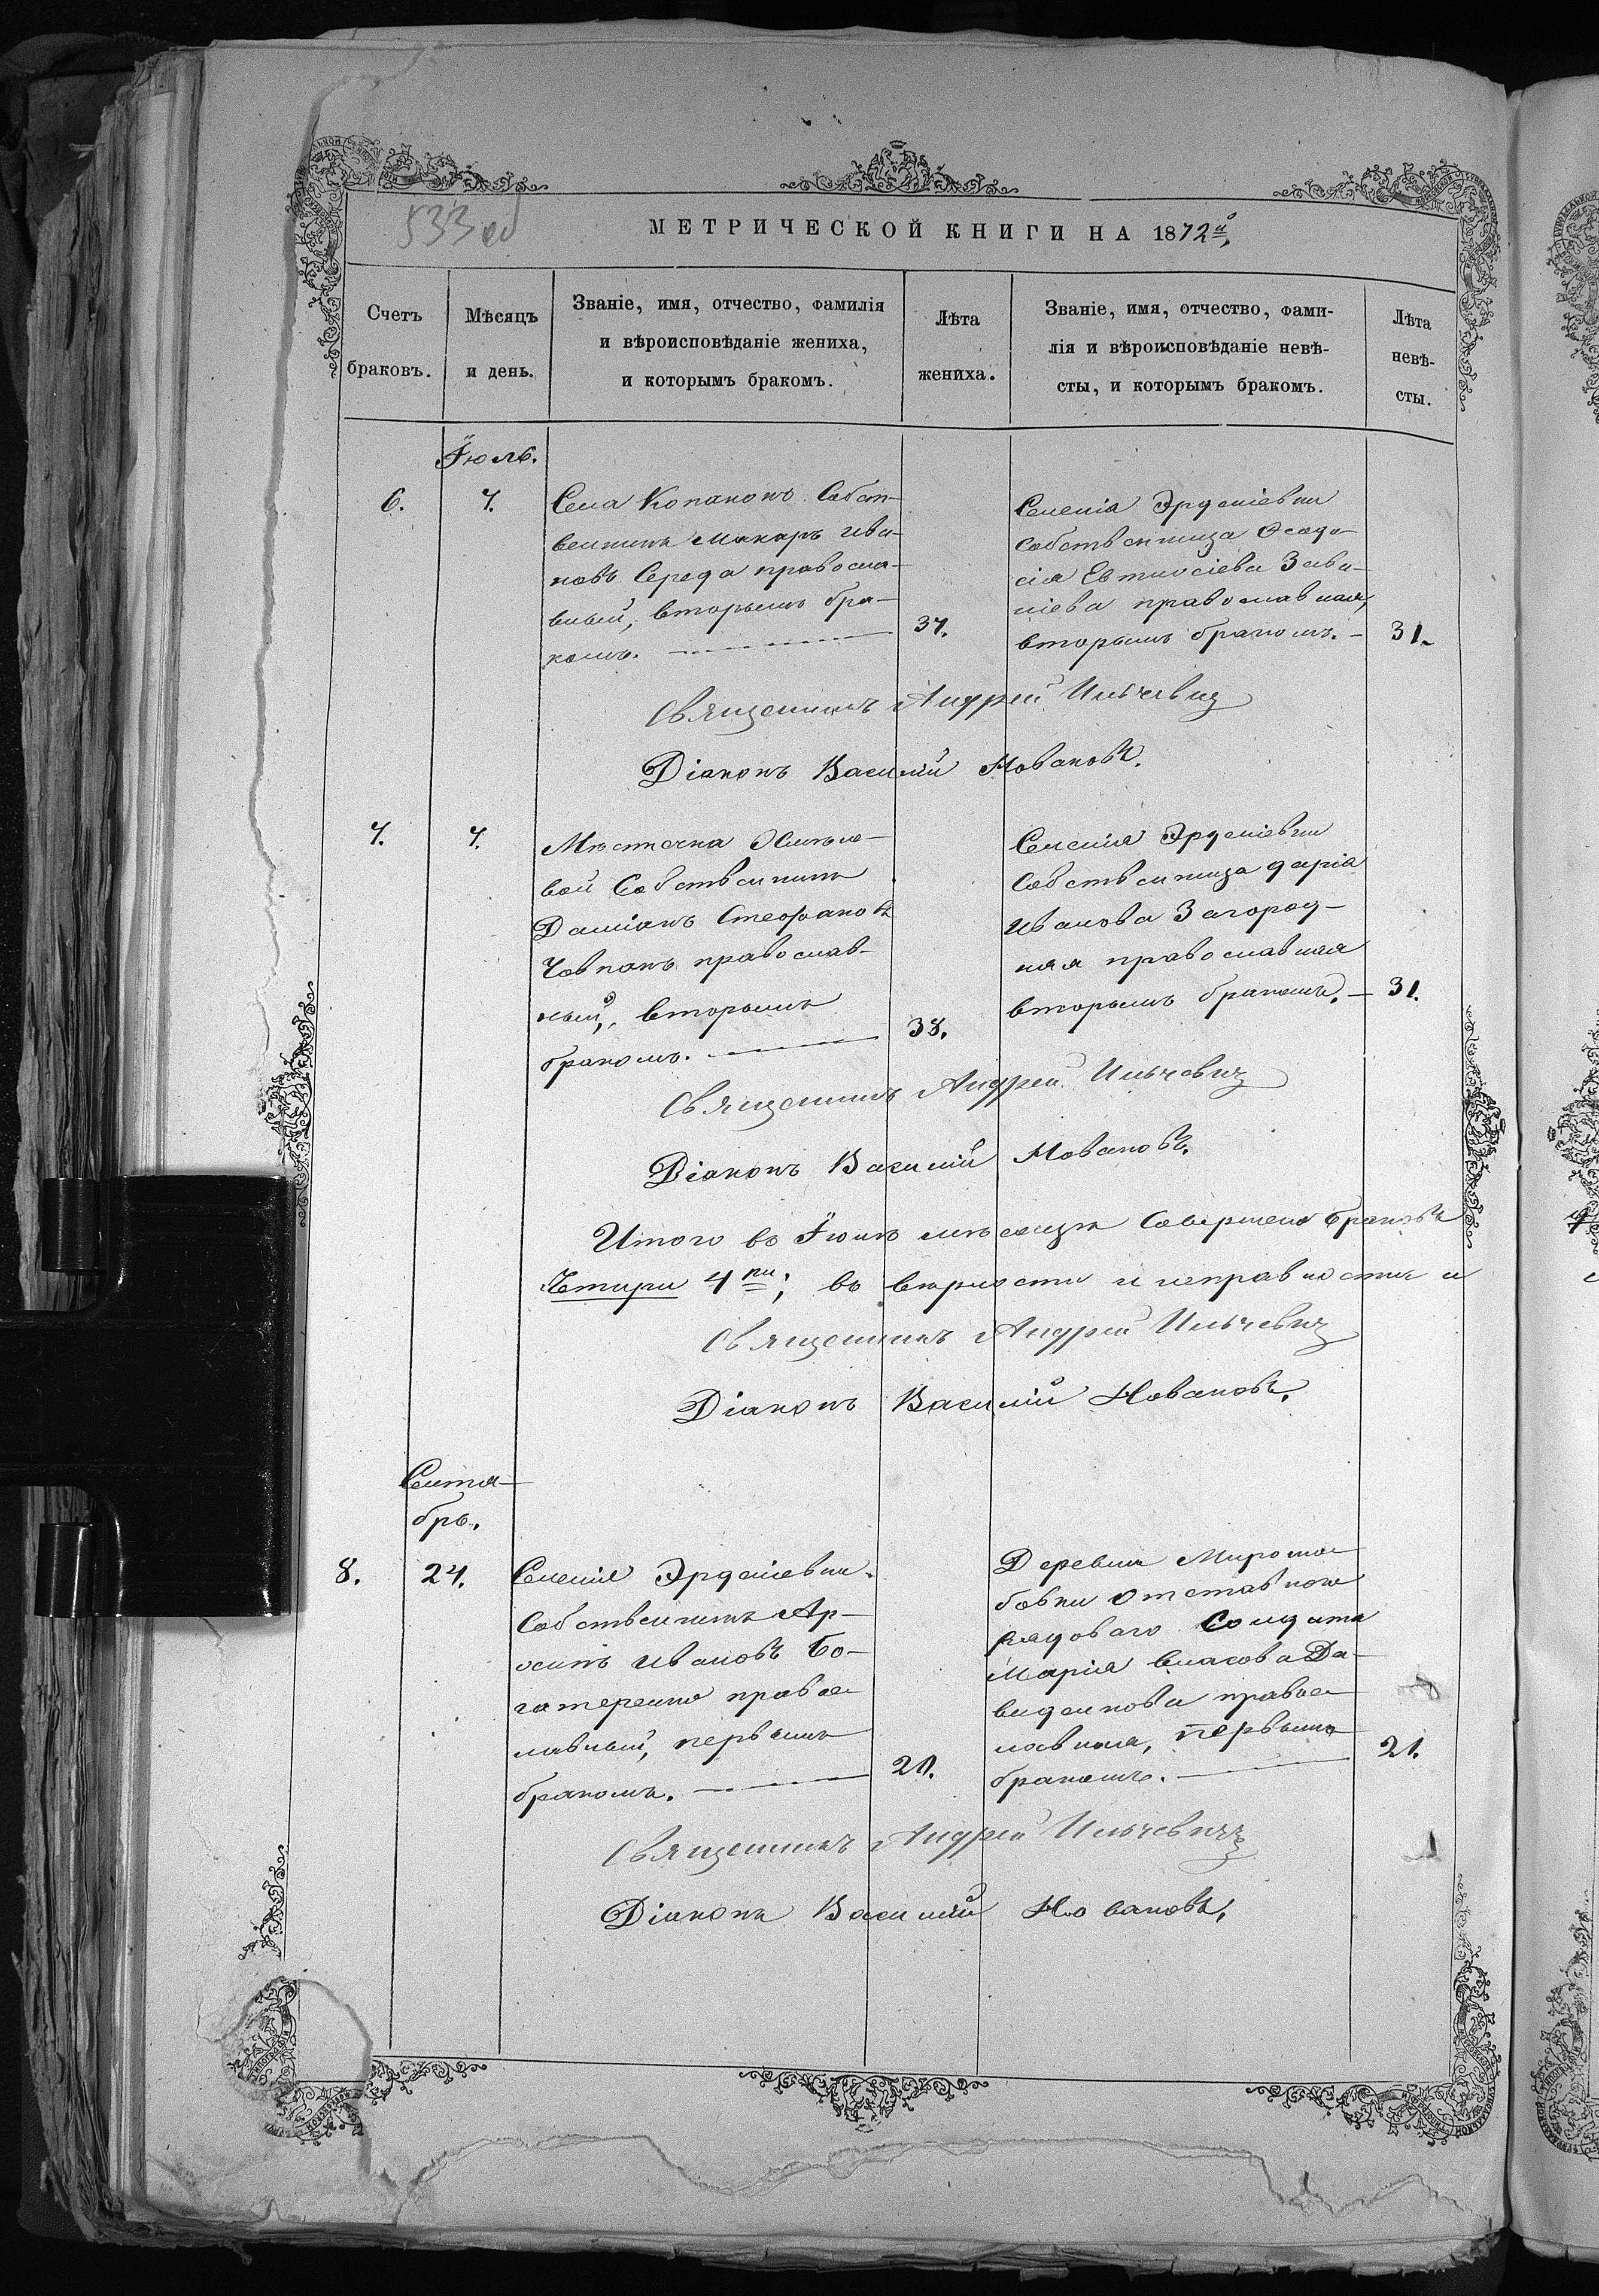 533 об
МЕТРИЧЕСКОЙ КНИГИ НА 1872й,
Счетъ браковъ.
Мѣсяцъ и день.
Званіе, имя, отчество, фамилія
и вѣроисповѣданіе жениха,
и которымъ бракомъ.
Лѣта жениха.
Званіе, имя, отчество, фами-
лія и вѣроисповѣданіе невѣ-
сты, и которымъ бракомъ.
Лѣта невѣ-
сты.
Іюль.
6.
7.
Села Копаконъ Собст-
венникъ Макаръ Ива-
новъ Середа правосла-
вный, вторымъ бра-
комъ.
37.
Селенія Эрделіевки
Собственница Ѳеодо-
сія Евтихіева
православная,
вторымъ бракомъ. —
31.
Священникъ Андрей Ильчевич
Діаконъ Василій Новаковъ.
7.
7.
Мѣстечка
вой Собственникъ
Даміанъ Стефановъ
Човпанъ православ-
ный, вторымъ
бракомъ.
38.
Селенія Эрделіевки
Собственница Дарія
Иванова Загород-
няя православная
вторымъ бракомъ. —
31.
Священникъ Андрей Ильчевич
Діаконъ Василій Новаковъ.
Итого въ Іюлѣ мѣсяцѣ Совершено браковъ
Четыри 4ри; въ вѣрности и исправности и
Священникъ Андрей Ильчевич
Діаконъ Василій Новаковъ.
Сентя-
брь.
8.
24.
Селенія Эрделіевки.
Собственникъ Ар-
Ивановъ Бо-
гатеренко правос
лавный, первымъ
бракомъ.
20.
Деревни Миролю
бовки отставного
рядоваго Солдата
Марія Власова Да-
виденкова правос
лавная, первымъ
бракомъ.
21.
Священникъ Андрей Ильчевичъ
Діаконъ Василій Новаковъ.